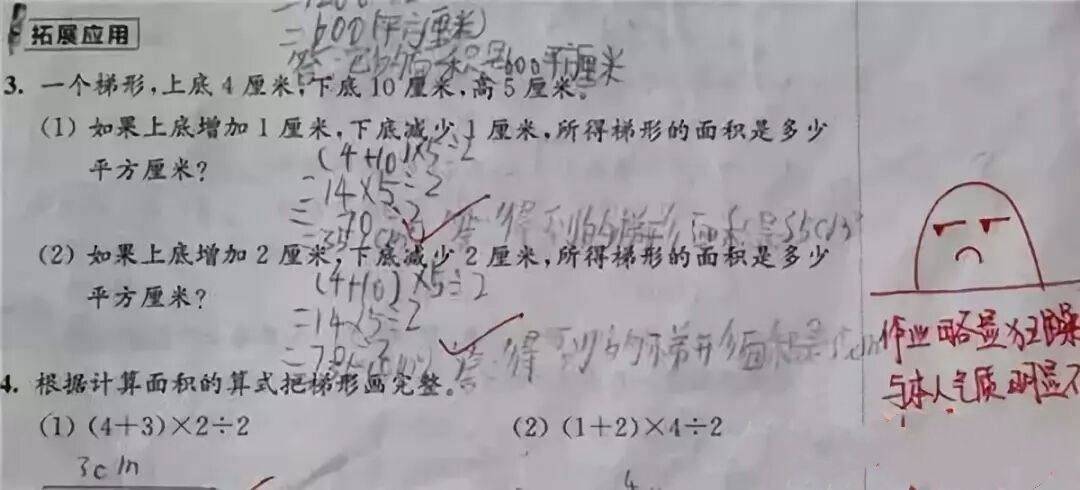 =600(平方厘米)
答:它的面积是600平方厘米
拓展应用
3. 一个梯形,上底 4 厘米,下底 10 厘米,高 5 厘米。
(1) 如果上底增加 1 厘米,下底减少 1 厘米,所得梯形的面积是多少
平方厘米?
(4+10)×5÷2
=14×5÷2
=70÷2
答:得到的梯形面积是35cm²
(2) 如果上底增加 2 厘米,下底减少 2 厘米,所得梯形的面积是多少
平方厘米?
(4+10)×5÷2
=14×5÷2
=70÷2
答:得到的梯形面积是
作业略显狂躁
与本人气质明显不
4. 根据计算面积的算式把梯形画完整。
(1) (4+3)×2÷2
(2) (1+2)×4÷2
3cm
4